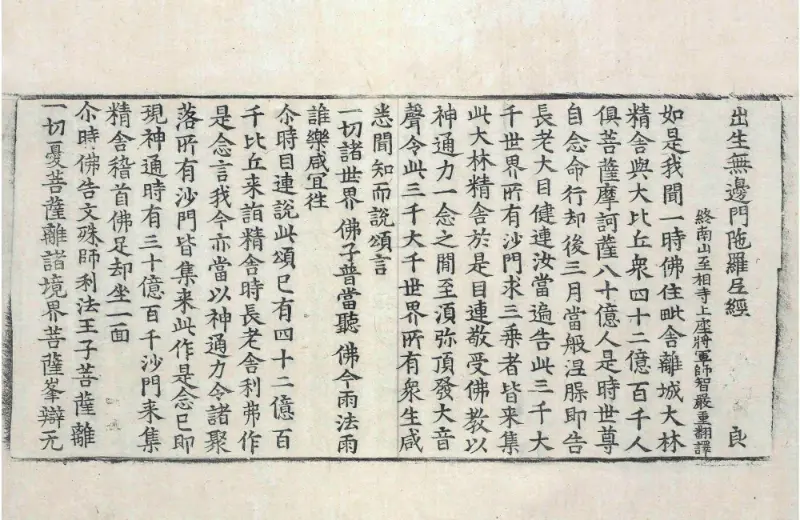 出生無邊門陁羅尼經 良
終南山至相寺上座將軍師智嚴重翻譯
如是我聞一時佛住毗舍離城大林
精舍與大比丘衆四十二億百千人
俱菩薩摩訶薩八十億人是時世尊
自念命行却後三月當般涅槃即告
長老大目健連汝當遍告此三千大
千世界所有沙門求三乘者皆来集
此大林精舍於是目連敬受佛教以
神通力一念之閒至湏弥頂發大音
聲令此三千大千世界所有衆生咸
悉聞知而說頌言
一切諸世界 佛子普當聽 佛今雨法雨
誰樂咸宜徃
尒時目連說此頌已有四十二億百
千比丘来詣精舍時長老舍利弗作
是念言我今亦當以神通力令諸聚
落所有沙門皆集来此作是念已即
現神通時有三十億百千沙門来集
精舍稽首佛足却坐一面
尒時佛告文殊師利法王子菩薩離
一切憂菩薩離諸境界菩薩峯辯无